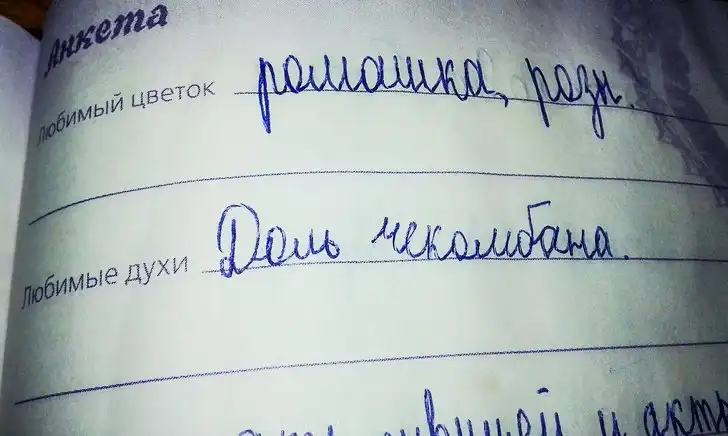 Анкета
Любимый цветок ромашка, розы.
Любимые духи Доль чекомбана.
и акт